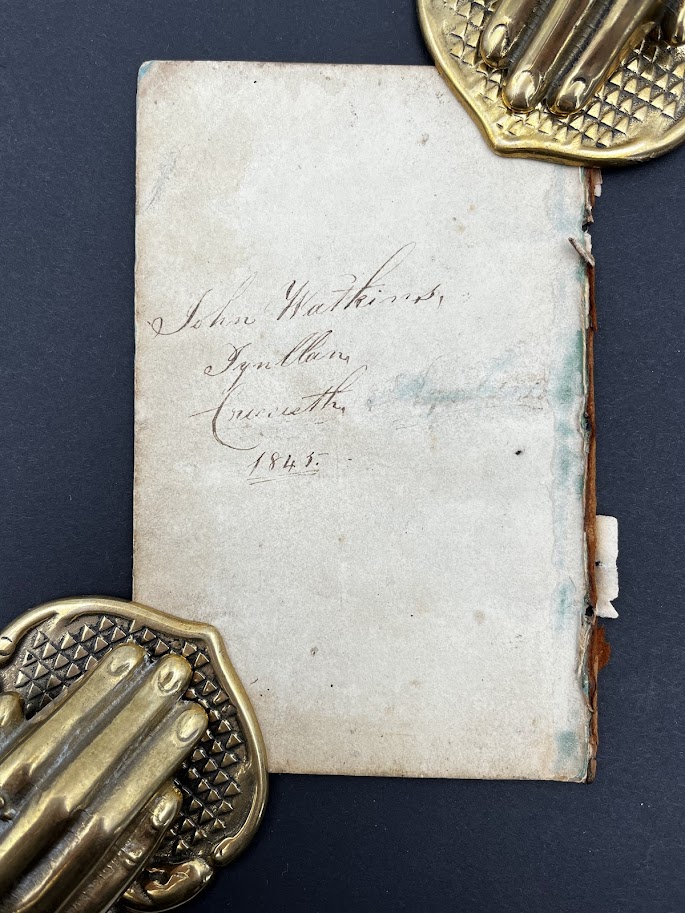 John Watkins,
Tynllan,
1845.